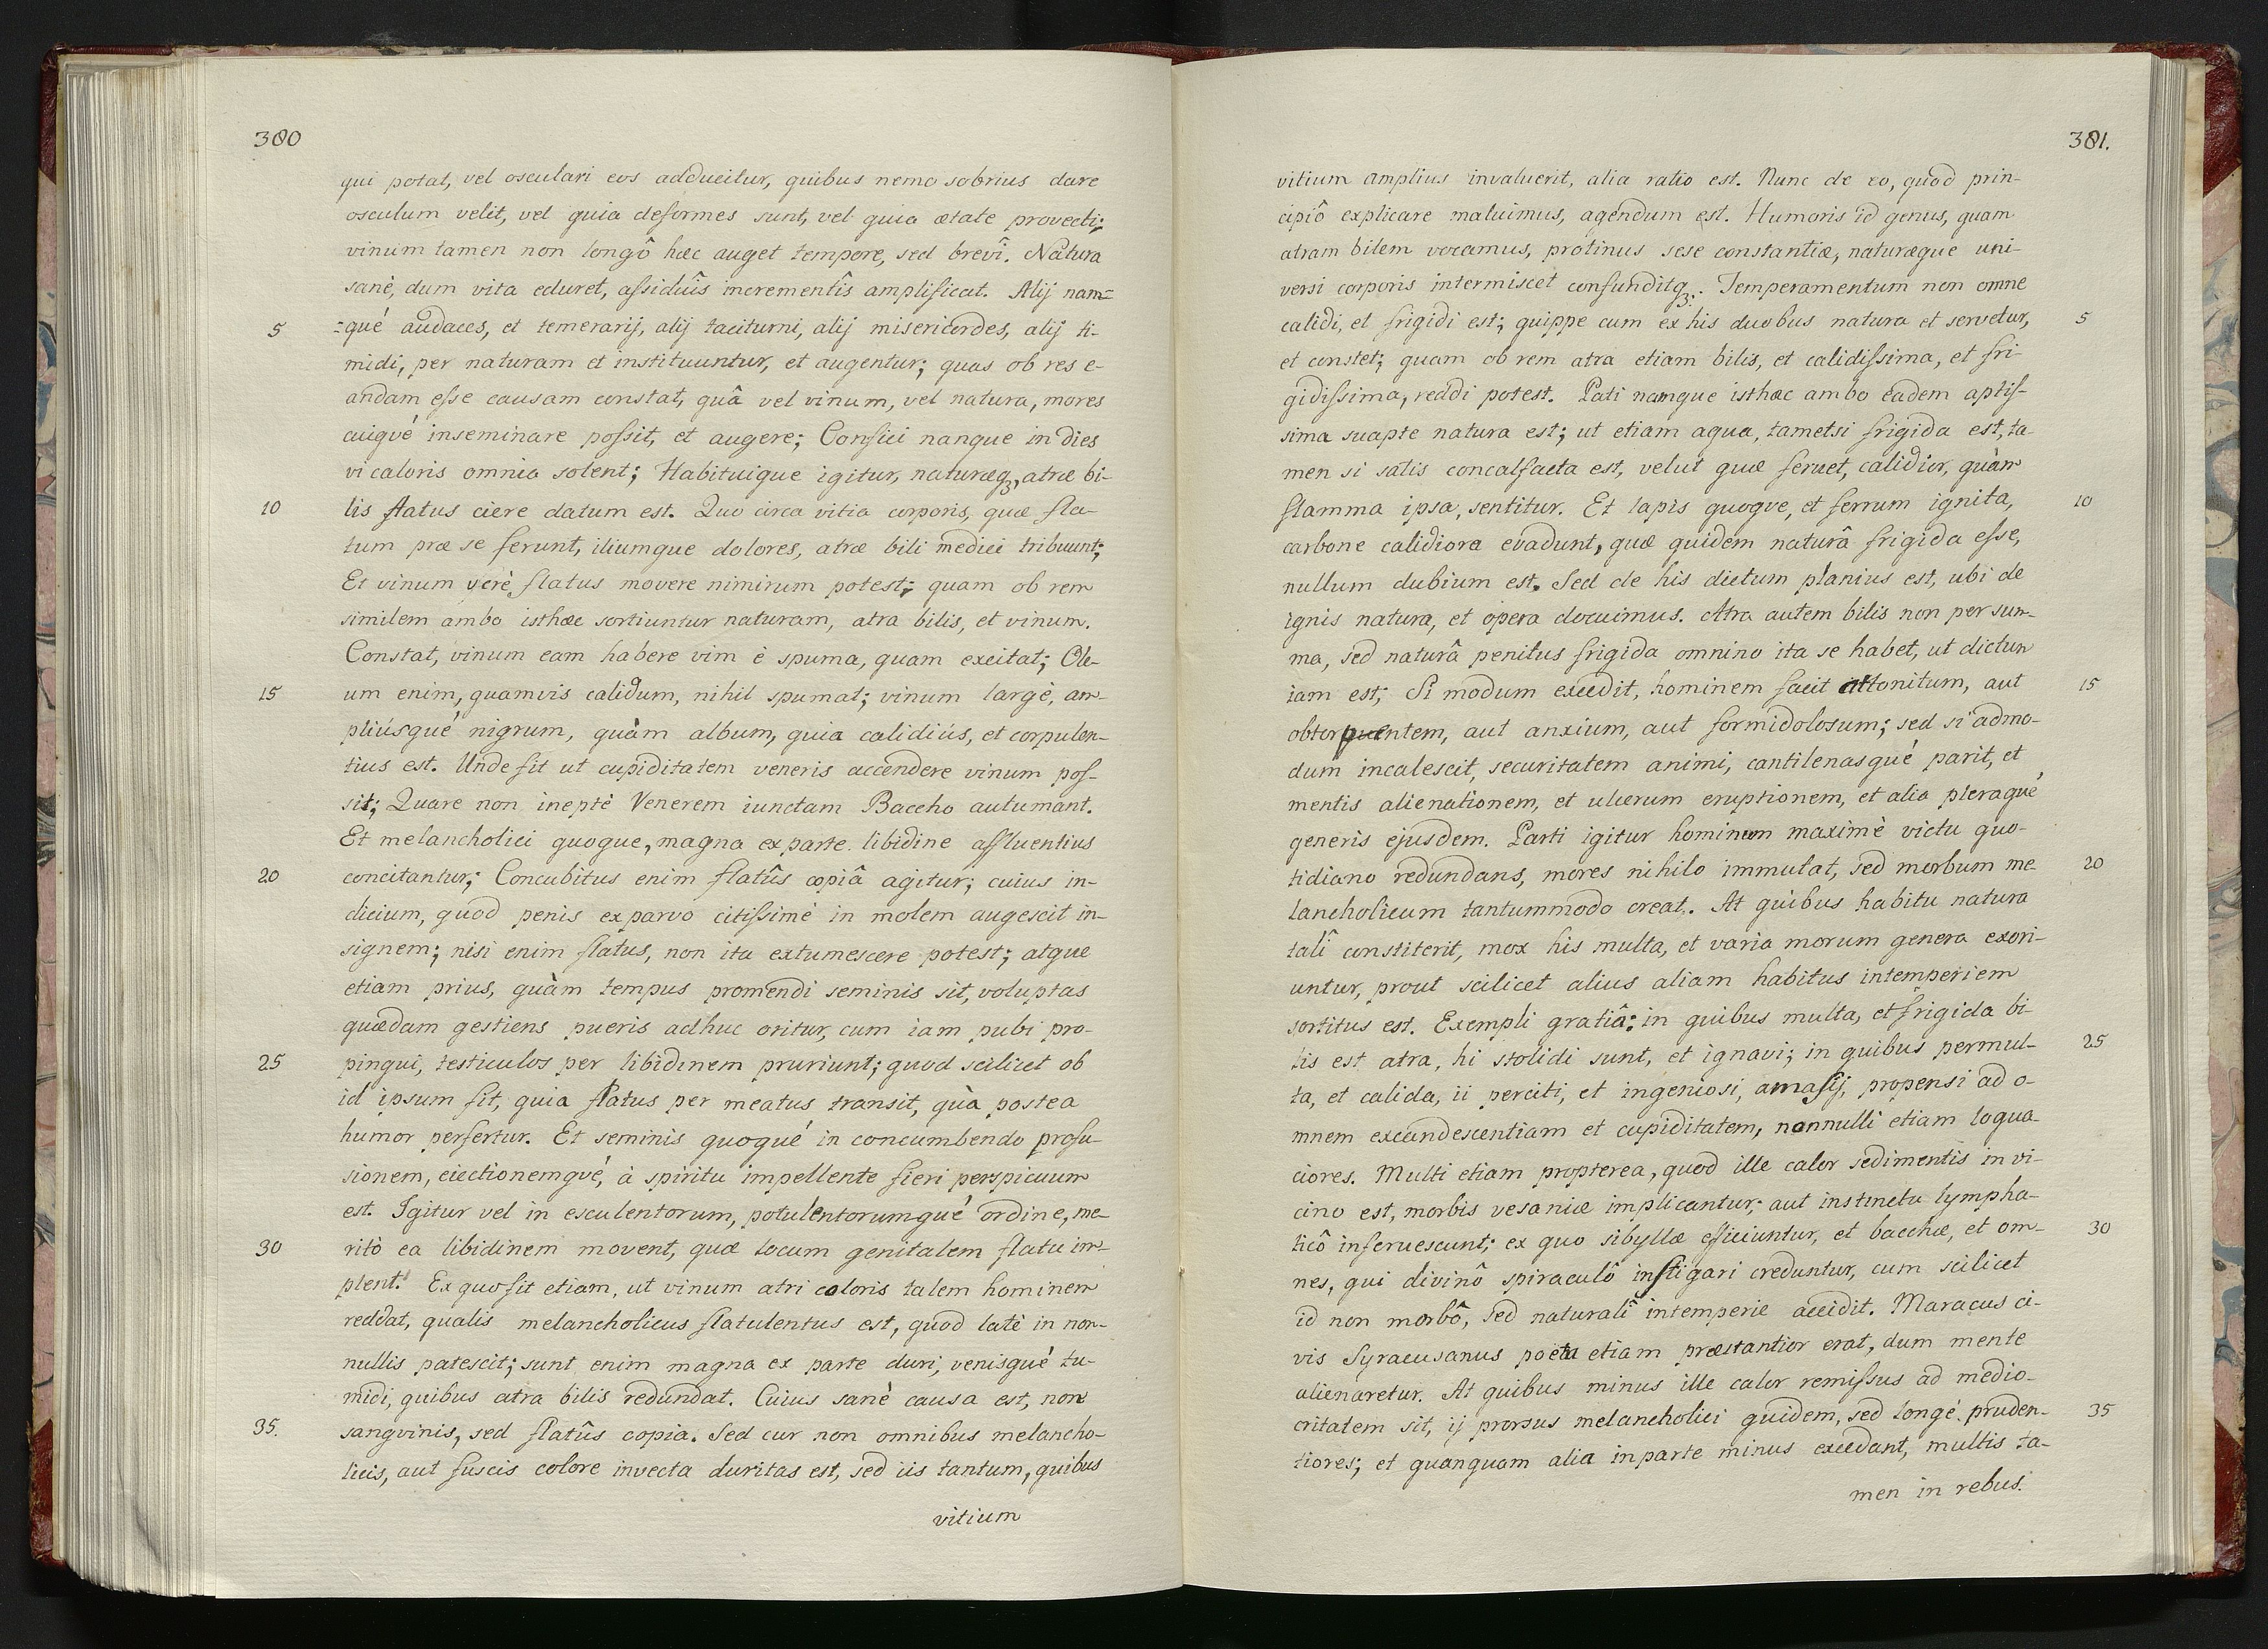 380
qui potat, vel osculari eos adducitur, quibus nemo sobrius dare
osculum velit, vel quia deformes sunt, vel quia ætate provecti;
vinum tamen non longô hæc auget tempore, sed brevî. Natura
sanè, dum vita eduret, assiduîs incrementîs amplificat. Alij nam=
5 =qué audaces, et temerarij, alij taciturni, alij misericordes, alij ti-
midi, per naturam et instituuntur, et augentur; quas ob res e-
andam esse causam constat, quâ vel vinum, vel natura, mores
cuiqvé inseminare possit, et augere; Confici nanque in dies
vi caloris omnia solent; Habituique igitur, naturæq3, atræ bi-
10 lis flatus ciere datum est. Quo circa vitia corporis, quæ fla-
tum præ se ferunt, iliumque dolores, atræ bili medici tribuunt;
Et vinum verè, flatus movere nimirum potest; quam ob rem
similem ambo isthæc sortiuntur naturam, atra bilis, et vinum.
Constat, vinum eam habere vim è spuma, quam excitat; Ole-
15 um enim, quamvis calidum, nihil spumat; vinum largè, am-
pliúsqué nigrum, quàm album, quia calidiús, et corpulen-
tius est. Unde fit ut cupiditatem veneris accendere vinum pos-
sit; Quare non ineptè Venerem iunctam Baccho autumant.
Et melancholici quoque, magna ex parte libidine affluentius
20 concitantur; Concubitus enim flatûs copiâ agitur; cuius in-
dicium, quod penis ex parvo citissimè in molem augescit in-
signem; nisi enim flatus, non ita extumescere potest; atque
etiam prius, quàm tempus promendi seminis sit, voluptas
quædam gestiens pueris adhuc oritur, cum iam pubi pro-
25 pinqui, testiculos per libidinem pruriunt; quod scilicet ob
id ipsum fit, quia flatus per meatus transit, quà postea
humor perfertur. Et seminis quoqué in concumbendo profu-
sionem, eiectionemqvé, à spiritu impellente fieri perspicuum
est. Igitur vel in esculentorum, potulentorumqué ordine, me-
30 ritò ea libidinem movent, quæ locum genitalem flatu im-
plent. Ex quo fit etiam, ut vinum atri coloris talem hominem
reddat, qualis melancholicus flatulentus est, quod latè in non-
nullis patescit; sunt enim magna ex parte duri, venisqué tu-
midi, quibus atra bilis redundat. Cuius sanè causa est, non
35. sangvinis, sed flatûs copia. Sed cur non omnibus melancho-
licis, aut fuscis colore invecta duritas est, sed iis tantum, quibus
vitium
381.
vitium amplius invaluerit, alia ratio est. Nunc de eo, quod prin-
cipiô explicare maluimus, agendum est. Humoris id genus, quam
atram bilem vocamus, protinus sese constantiæ, naturæque uni-
versi corporis intermiscet confunditq3. Temperamentum non omne
calidi, et frigidi est; quippe cum ex his duobus natura et servetur, 5
et constet; quam ob rem atra etiam bilis, et calidissima, et fri-
gidissima, reddi potest. Pati namque isthæc ambo eadem aptis-
sima suapte natura est; ut etiam aqua, tametsi frigida est, ta-
men si satis concalfacta est, velut quæ feruet, calidior, quàm
flamma ipsa, sentitur. Et lapis quoqve, et ferrum ignita, 10
carbone calidiora evadunt, quæ quidem naturâ frigida esse,
nullum dubium est. Sed de his dictum planius est, ubi de
ignis natura, et opera docuimus. Atra autem bilis non per sum-
ma, sed naturâ penitus frigida omnino ita se habet, ut dictum
iam est; Si modum excedit, hominem facit attonitum, aut 15
obtorquentem, aut anxium, aut formidolosum; sed si admo-
dum incalescit, securitatem animi, cantilenasqué parit, et
mentis alienationem, et ulcerum eruptionem, et alia pleraqué
generis ejusdem. Parti igitur hominum maximè victu quo-
tidiano redundans, mores nihilo immutat, sed morbum me- 20
lancholicum tantummodo creat. At quibus habitu natura
talî constiterit, mox his multa, et varia morum genera exori-
untur, prout scilicet alius aliam habitus intemperiem
sortitus est. Exempli gratiâ: in quibus multa, et frigida bi-
lis est atra, hi stolidi sunt, et ignavi; in quibus permul- 25
ta, et calida, ii perciti, et ingeniosi, amasij, propensi ad o-
mnem excandescentiam et cupiditatem, nonnulli etiam loqua-
ciores. Multi etiam propterea, quod ille calor sedimentis in vi-
cino est, morbis vesaniæ implicantur; aut instinctu lympha-
ticô inferuescunt; ex quo sibyllæ efficiuntur, et bacchæ, et om- 30
nes, qui divinô spiraculô instigari creduntur, cum scilicet
id non morbô, sed naturalî intemperie accidit. Maracus ci-
vis Syracusanus poëta etiam præstantior erat, dum mente
alienaretur. At quibus minus ille calor remissus ad medio-
critatem sit, ij prorsus melancholici quidem, sed longé pruden- 35
tiores; et quanquam alia in parte minus excedant, multis ta-
men in rebus.